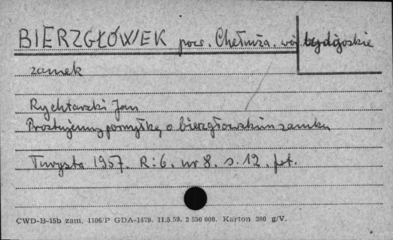 BIERZGŁÓWIEK pow. Chełmża. woj. bydgoskie
zamek
Rychtarski Jan
Prostujemy pomyłkę o bierzgłowskim zamku
Turysta 1957. R: 6. nr 8. s. 12. fot.
CWD-B-15b zam. 1106/P GDA-1479. 11.5.59. 2 550 000. Karton 200 g/V.